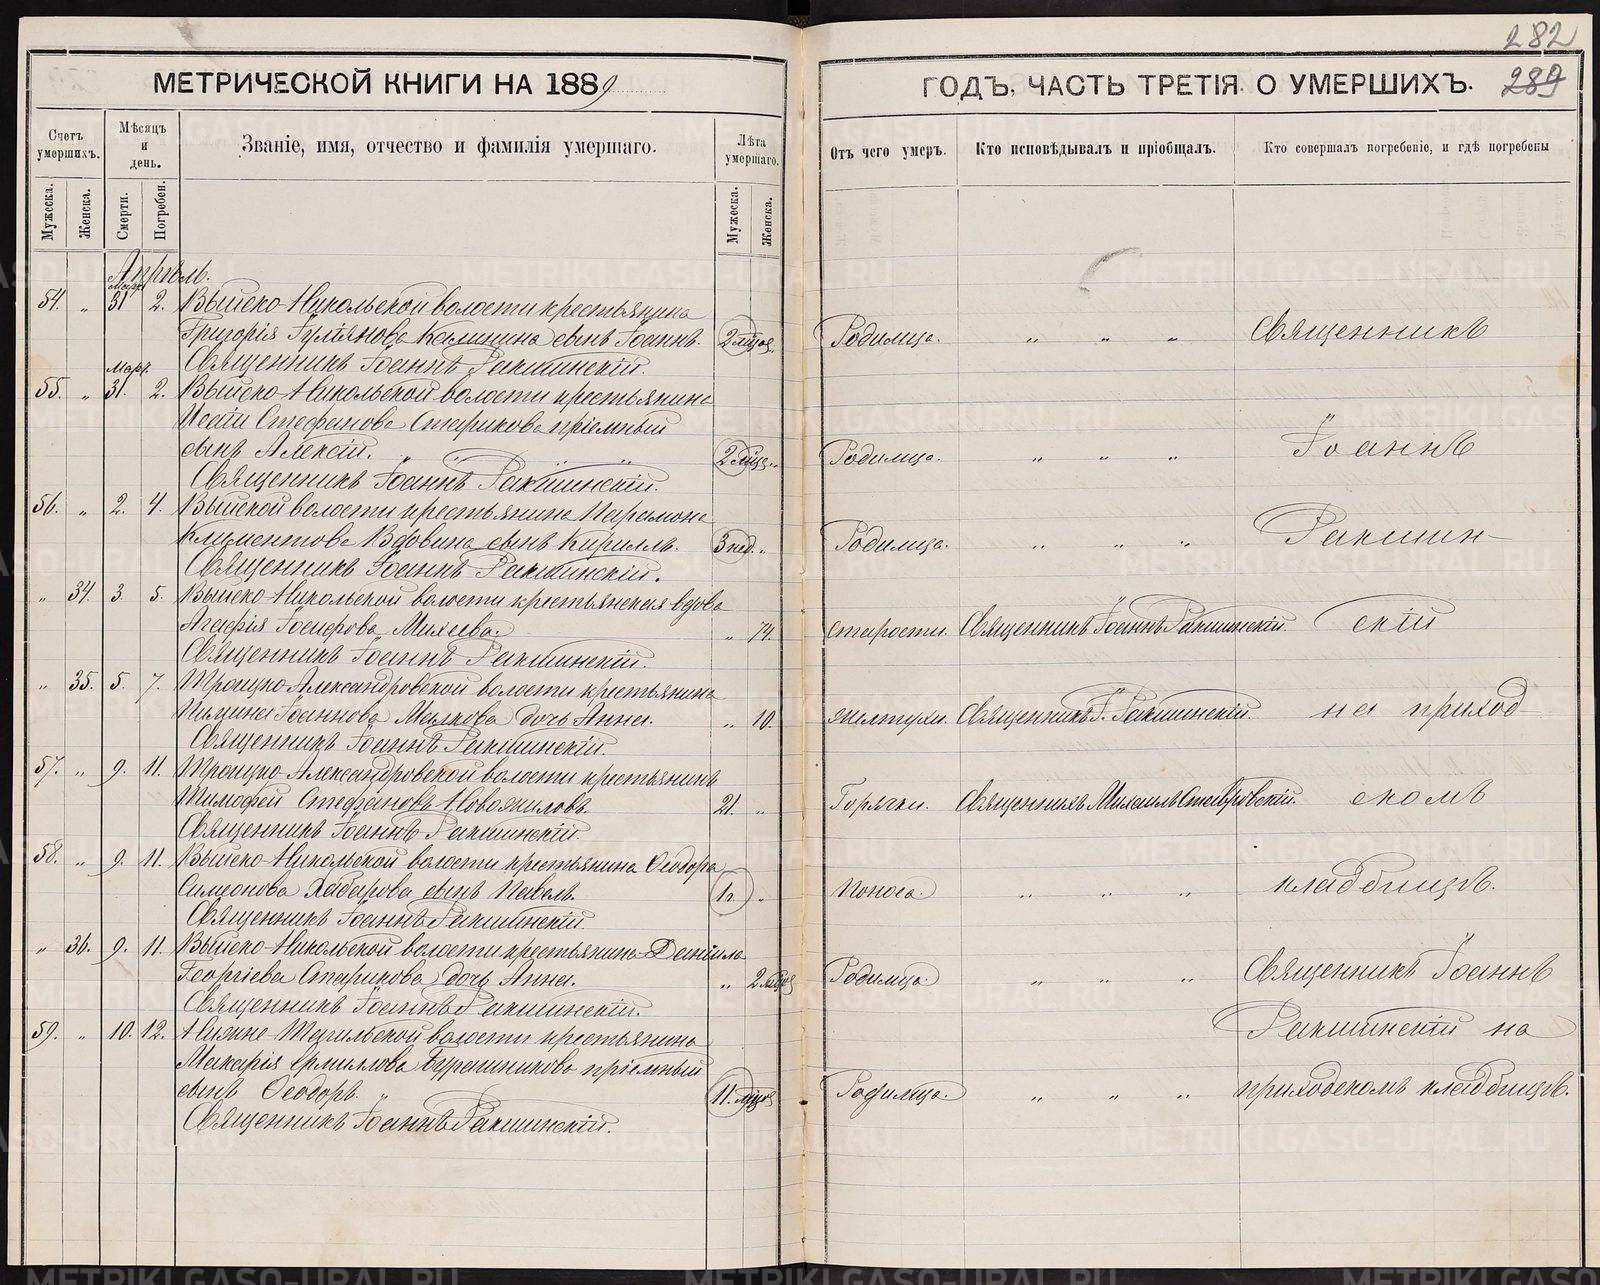 282
МЕТРИЧЕСКОЙ КНИГИ НА 1889
ГОДЪ, ЧАСТЬ ТРЕТІЯ О УМЕРШИХЪ.
289
Счетъ умершихъ.
Мѣсяцъ и день.
Званіе, имя, отчество и фамилія умершаго.
Лѣта умершаго.
Отъ чего умеръ.
Кто исповѣдывалъ и пріобщалъ.
Кто совершалъ погребеніе, и гдѣ погребены
Мужеска.
Женска.
Смерти.
Погребен.
Мужеска.
Женска.
Апрѣль.
Март
54. " 31 2. Выйско-Никольской волости крестьянина
Григорія Калинина сынъ Іоаннъ. 2 мѣся. Родимца. " " " Священникъ
Священникъ Іоаннъ Ракшинскій.
Март.
55. " 31. 2. Выйско-Никольской волости крестьянина
Исаіи Стефанова Старикова пріемный
сынъ Алексій. 2 мѣся. " Родимца. " " " Іоаннъ
Священникъ Іоаннъ Ракшинскій.
56. " 2. 4. Выйской волости крестьянина Парамона
Климентова Вдовина сынъ Кириллъ. 3 нед. " Родимца. " " " Ракшин-
Священникъ Іоаннъ Ракшинскій.
" 34. 3. 5. Выйско-Никольской волости крестьянская вдова
Агафія Іосифова Михеева. " 74. старости. Священникъ Іоаннъ Ракшинскій. скій
Священникъ Іоаннъ Ракшинскій.
" 35. 5. 7. Троицко-Александровской волости крестьянина
Пимина Іоаннова Малкова дочь Анна. " 10. желтухи. Священникъ І. Ракшинскій. на приход-
Священникъ Іоаннъ Ракшинскій.
57. " 9. 11. Троицко-Александровской волости крестьянинъ
Тимофей Стефановъ Новожиловъ. 21. " Горячки. Священникъ Михаилъ Ставровскій. скомъ
Священникъ Іоаннъ Ракшинскій.
58. " 9. 11. Выйско-Никольской волости крестьянина Ѳеодора
Симеонова Хабарова сынъ Павелъ. 1 г. " Поноса. " " " кладбищѣ.
Священникъ Іоаннъ Ракшинскій.
" 36. 9. 11. Выйско-Никольской волости крестьянина Даніила
Георгіева Старикова дочь Анна. " 2 мѣся Родимца. " " " Священникъ Іоаннъ
Священникъ Іоаннъ Ракшинскій.
Ракшинскій на
59. " 10. 12. Нижне-Тагильской волости крестьянина
Макарія Ермилова пріемный
сынъ Ѳеодоръ. " 11. мѣся Родимца. " " " приходскомъ кладбищѣ.
Священникъ Іоаннъ Ракшинскій.
METRIKI.GASO-URAL.RU